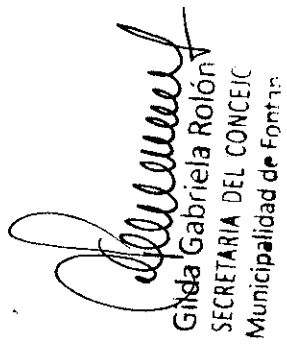 Gilda Gabriela Rolón
SECRETARIA DEL CONCEJC
Municipalidad de Fontan